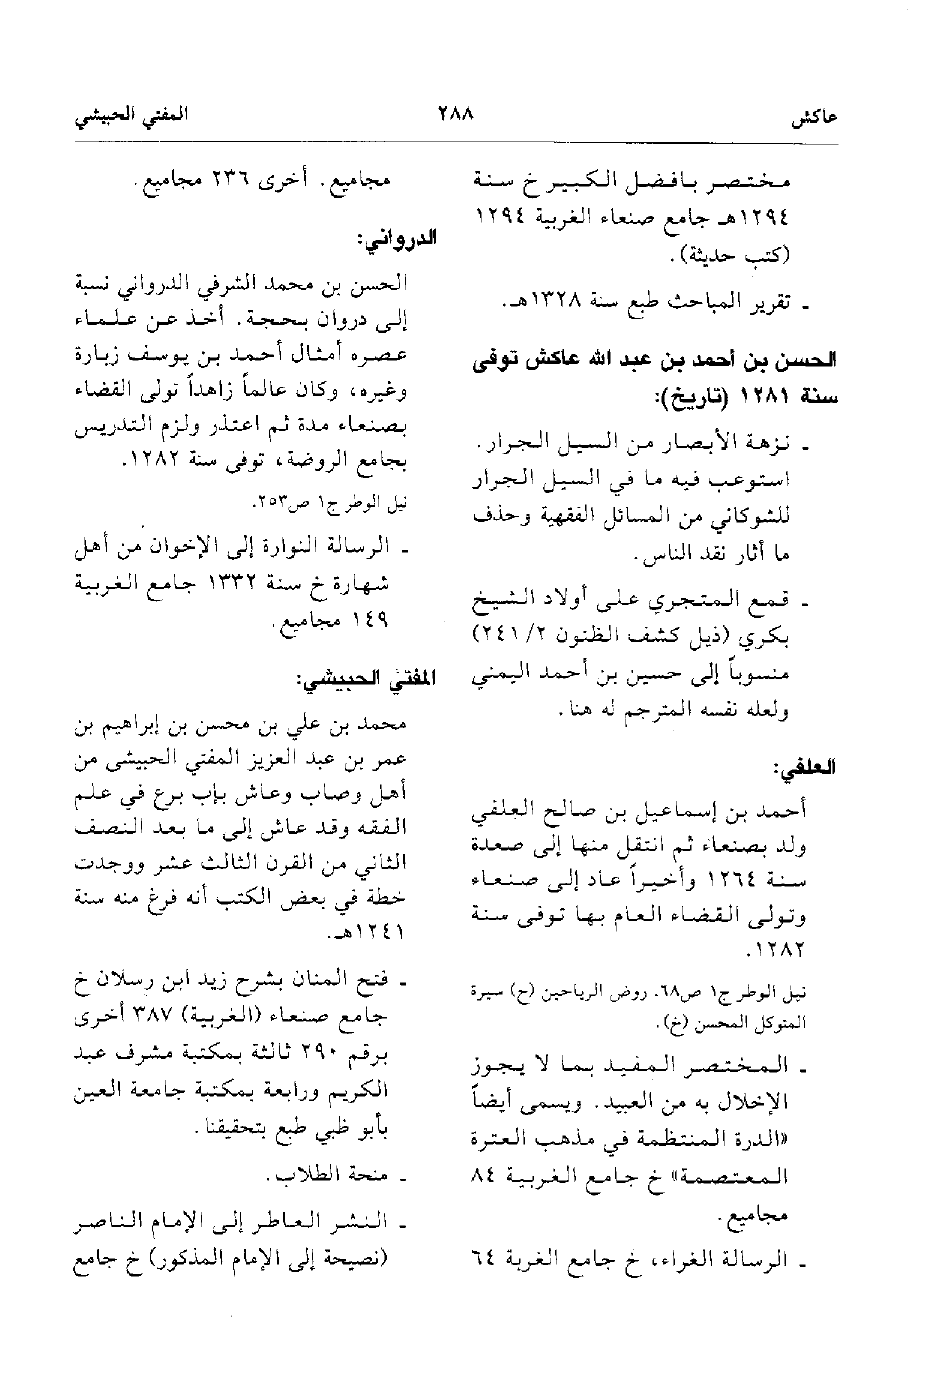 عاكش
٢٨٨
المفتي الحبيشي
مختصر بافضل الكبير خ سنة
١٢٩٤هـ جامع صنعاء الغربية ١٢٩٤
(كتب حديثة).
ـ تقرير المباحث طبع سنة ١٣٢٨هـ.
الحسن بن أحمد بن عبد الله عاكش توفى
سنة ١٢٨١ (تاريخ):
ـ نزهة الأبصار من السيل الجرار.
استوعب فيه ما في السيل الجرار
للشوكاني من المسائل الفقهية وحذف
ما أثار نقد الناس.
ـ قمع المتجري على أولاد الشيخ
بكري (ذيل كشف الظنون ٢/ ٢٤١)
منسوباً إلى حسين بن أحمد اليمني
ولعله نفسه المترجم له هنا.
العلفي:
أحمد بن إسماعيل بن صالح العلفي
ولد بصنعاء ثم انتقل منها إلى صعدة
سنة ١٢٦٤ وأخيراً عاد إلى صنعاء
وتولى القضاء العام بها توفى سنة
١٢٨٢.
نيل الوطر ج١ ص٦٨. روض الرياحين (ح) سيرة
المتوكل المحسن (خ).
ـ المختصر المفيد بما لا يجوز
الإخلال به من العبيد. ويسمى أيضاً
«الدرة المنتظمة في مذهب العترة
المعتصمة» خ جامع الغربية ٨٤
مجاميع.
ـ الرسالة الغراء، خ جامع الغربة ٦٤
مجاميع. أخرى ٢٣٦ مجاميع.
الدرواني:
الحسن بن محمد الشرفي الدرواني نسبة
إلى دروان بحجة. أخذ عن علماء
عصره أمثال أحمد بن يوسف زبارة
وغيره، وكان عالماً زاهداً تولى القضاء
بصنعاء مدة ثم اعتذر ولزم التدريس
بجامع الروضة، توفى سنة ١٢٨٢.
نيل الوطر ج١ ص٢٥٣.
ـ الرسالة النوارة إلى الإخوان من أهل
شهارة خ سنة ١٣٣٢ جامع الغربية
١٤٩ مجاميع.
المفتي الحبيشي:
محمد بن علي بن محسن بن إبراهيم بن
عمر بن عبد العزيز المفتي الحبيشى من
أهل وصاب وعاش بإب برع في علم
الفقه وقد عاش إلى ما بعد النصف
الثاني من القرن الثالث عشر ووجدت
خطة في بعض الكتب أنه فرغ منه سنة
١٢٤١هـ.
ـ فتح المنان بشرح زيد ابن رسلان خ
جامع صنعاء (الغربية) ٣٨٧ أخرى
برقم ٢٩٠ ثالثة بمكتبة مشرف عبد
الكريم ورابعة بمكتبة جامعة العين
بأبو ظبي طبع بتحقيقنا.
ـ منحة الطلاب.
ـ النشر العاطر إلى الإمام الناصر
(نصيحة إلى الإمام المذكور) خ جامع